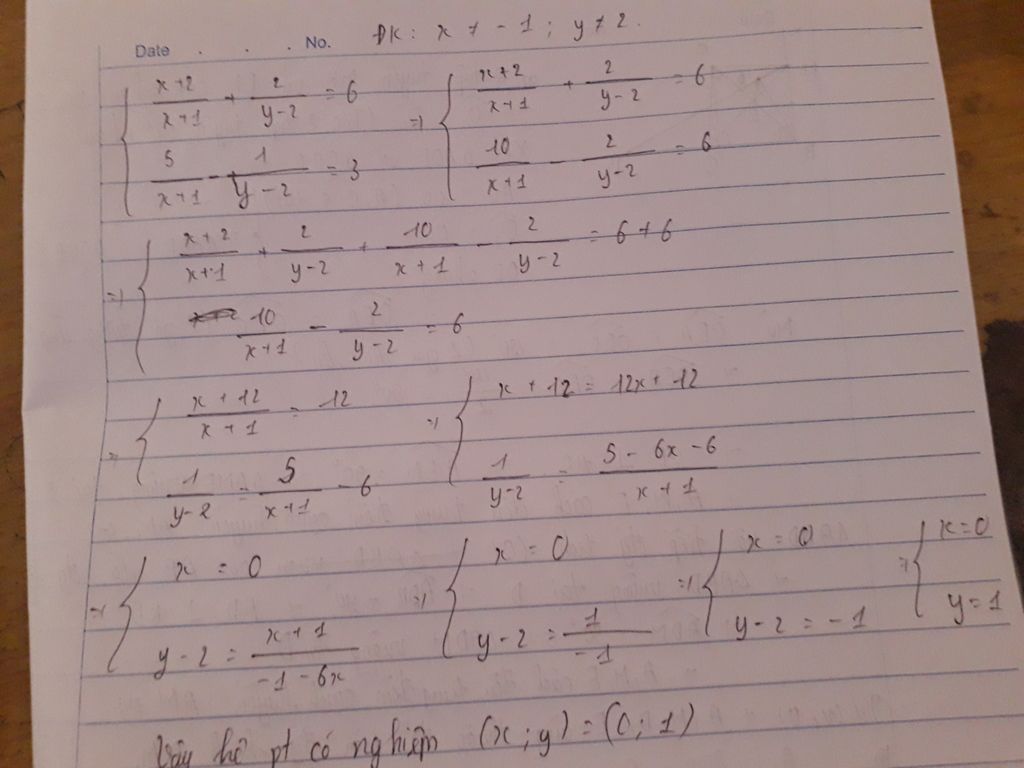 Date . . . No. ĐK: x ≠ -1 ; y ≠ 2.
{ (x+2)/(x+1) + 2/(y-2) = 6 ; 5/(x+1) - 1/(y-2) = 3 => { (x+2)/(x+1) + 2/(y-2) = 6 ; 10/(x+1) - 2/(y-2) = 6
=> { (x+2)/(x+1) + 2/(y-2) + 10/(x+1) - 2/(y-2) = 6 + 6 ; 10/(x+1) - 2/(y-2) = 6
=> { (x+12)/(x+1) = 12 ; 1/(y-2) = 5/(x+1) - 6 => { x + 12 = 12x + 12 ; 1/(y-2) = (5 - 6x - 6)/(x+1)
=> { x = 0 ; y - 2 = (x+1)/(-1-6x) => { x = 0 ; y - 2 = 1/(-1) => { x = 0 ; y - 2 = -1 => { x = 0 ; y = 1
Vậy hệ pt có nghiệm (x ; y) = (0 ; 1)